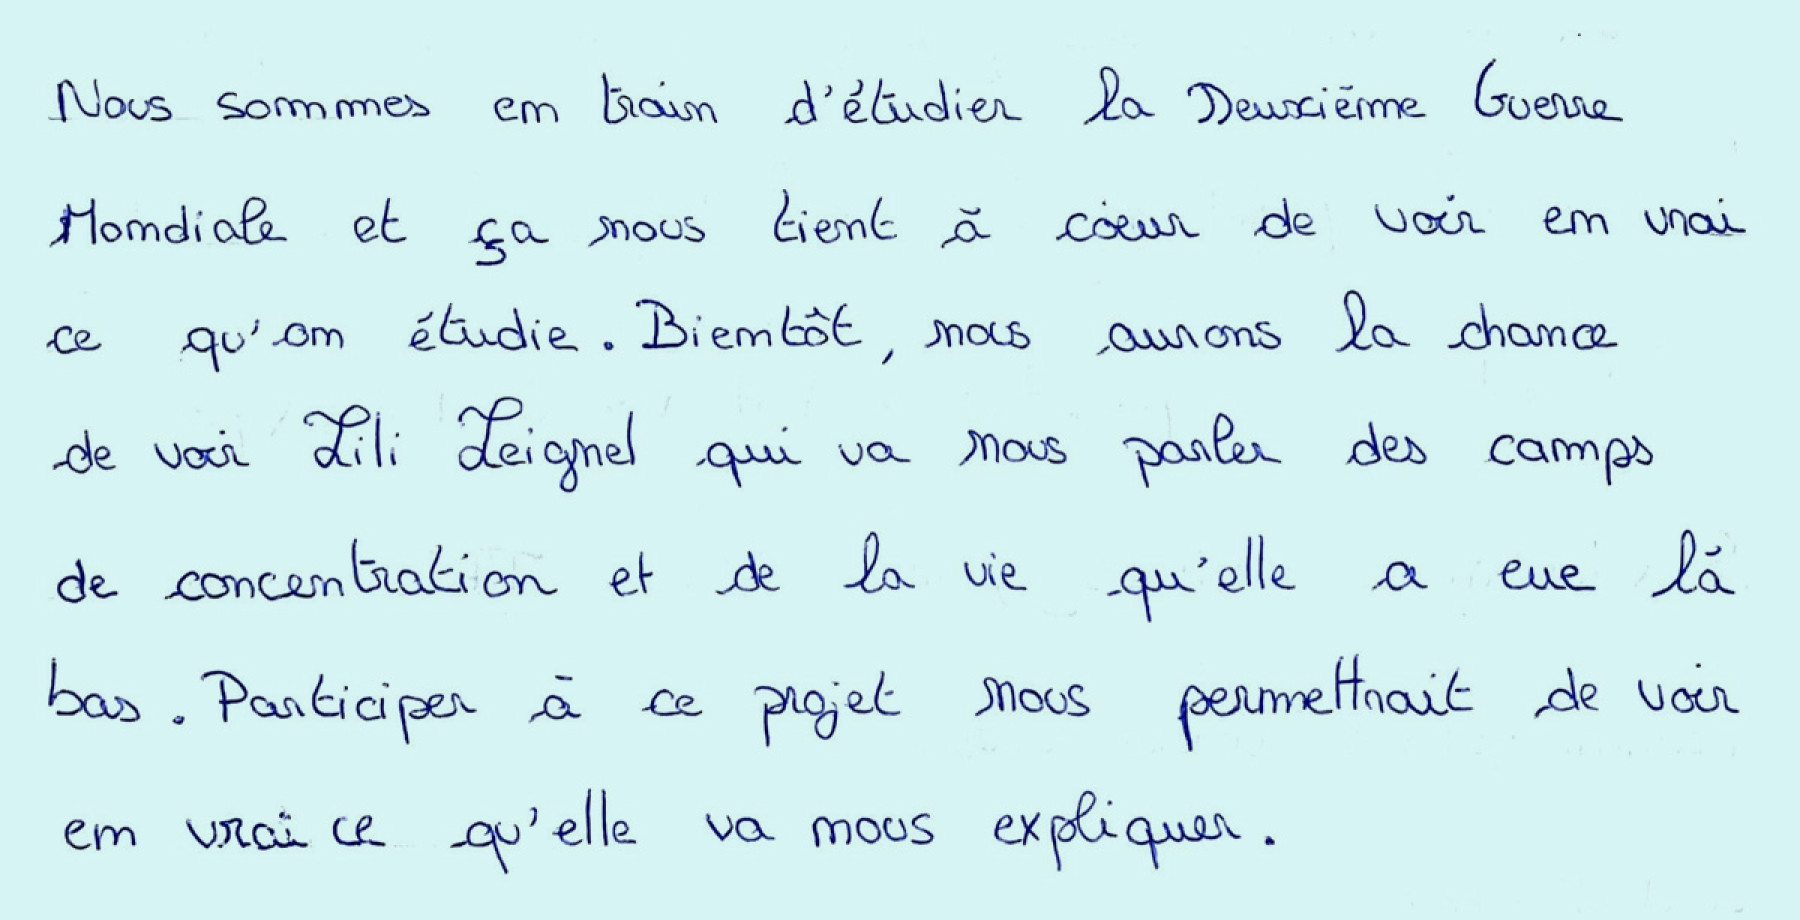 Nous sommes en train d'étudier la Deuxième Guerre
Mondiale et ça nous tient à cœur de voir en vrai
ce qu'on étudie. Bientôt, nous aurons la chance
de voir Lili Leignel qui va nous parler des camps
de concentration et de la vie qu'elle a eue là
bas. Participer à ce projet nous permettrait de voir
en vrai ce qu'elle va nous expliquer.